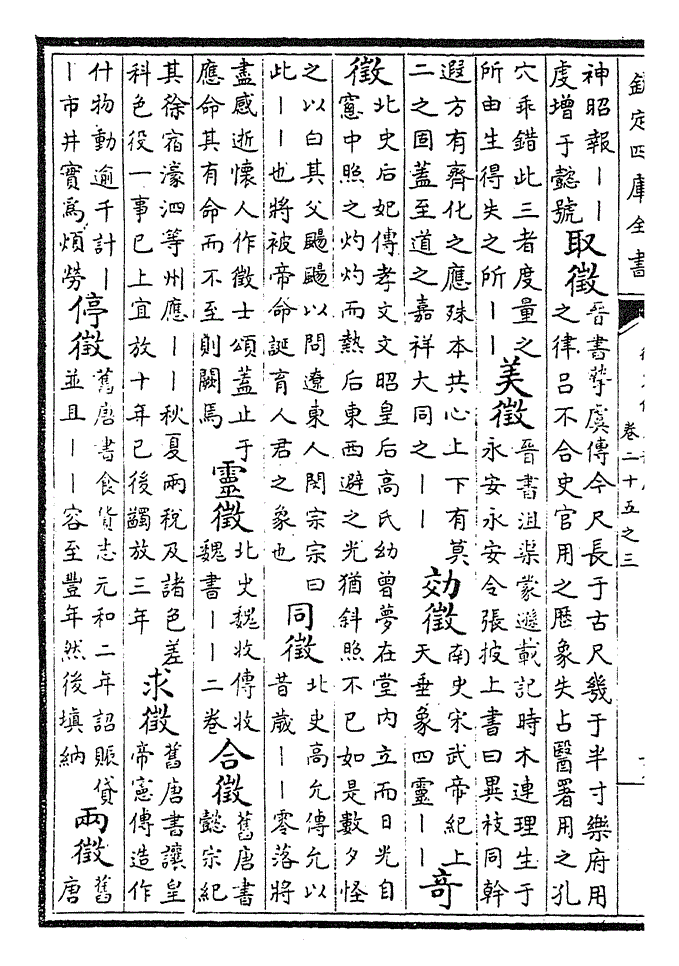 欽定四庫全書
卷二十五之三
神昭報一一
虔增于懿號
取徵
晉書摯虞傳今尺長于古尺幾于半寸樂府用
之律呂不合史官用之厯象失占醫署用之孔
穴乖錯此三者度量之
所由生得失之所一一
美徵
晉書沮渠蒙遜載記時木連理生于
永安永安令張披上書曰異枝同幹
遐方有齊化之應殊本共心上下有莫
二之固蓋至道之嘉祥大同之一一
効徵
南史宋武帝紀上
天垂象四靈一一
奇
徵
北史后妃傳孝文文昭皇后高氏幼曾夢在堂内立而日光自
窻中照之灼灼而熱后東西避之光猶斜照不已如是數夕怪
之以白其父颺颺以問遼東人閔宗宗曰
此一一也將被帝命誕育人君之象也
同徵
北史高允傳允以
昔歲一一零落將
盡感逝懷人作徵士頌蓋止于
應命其有命而不至則闕焉
靈徵
北史魏收傳收
魏書一一二卷
合徵
舊唐書
懿宗紀
其徐宿濠泗等州應一一秋夏兩税及諸色差
科色役一事已上宜放十年已後蠲放三年
求徵
舊唐書讓皇
帝憲傳造作
什物動逾千計一
一市井實爲煩勞
停徵
舊唐書食貨志元和二年詔賑貸
並且一一容至豐年然後填納
兩徵
舊
唐